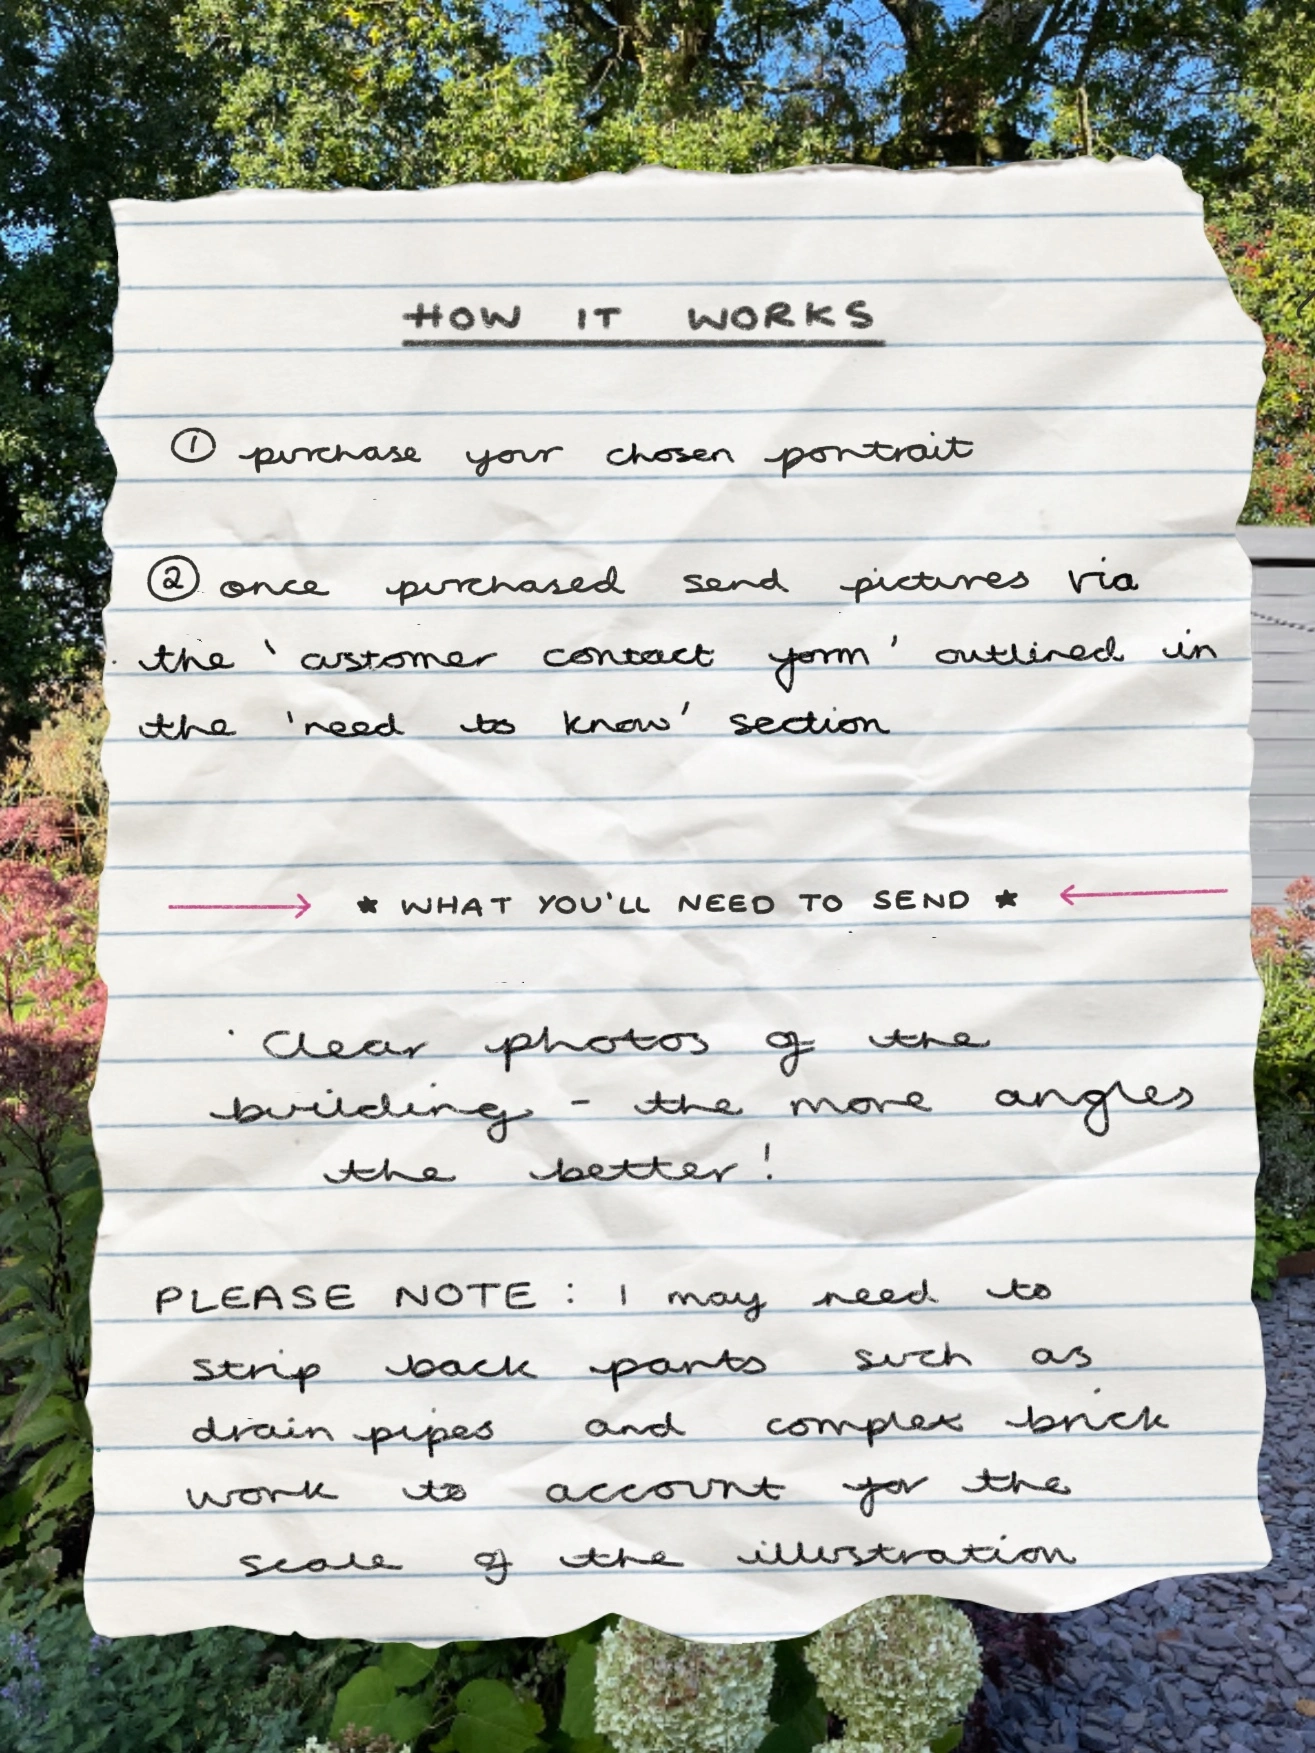 HOW IT WORKS
① purchase your chosen portrait
② once purchased send pictures via
the 'customer contact form' outlined in
the 'need to know' section
→ * WHAT YOU'LL NEED TO SEND * ←
· Clear photos of the
building - the more angles
the better!
PLEASE NOTE: I may need to
strip back parts such as
drain pipes and complex brick
work to account for the
scale of the illustration